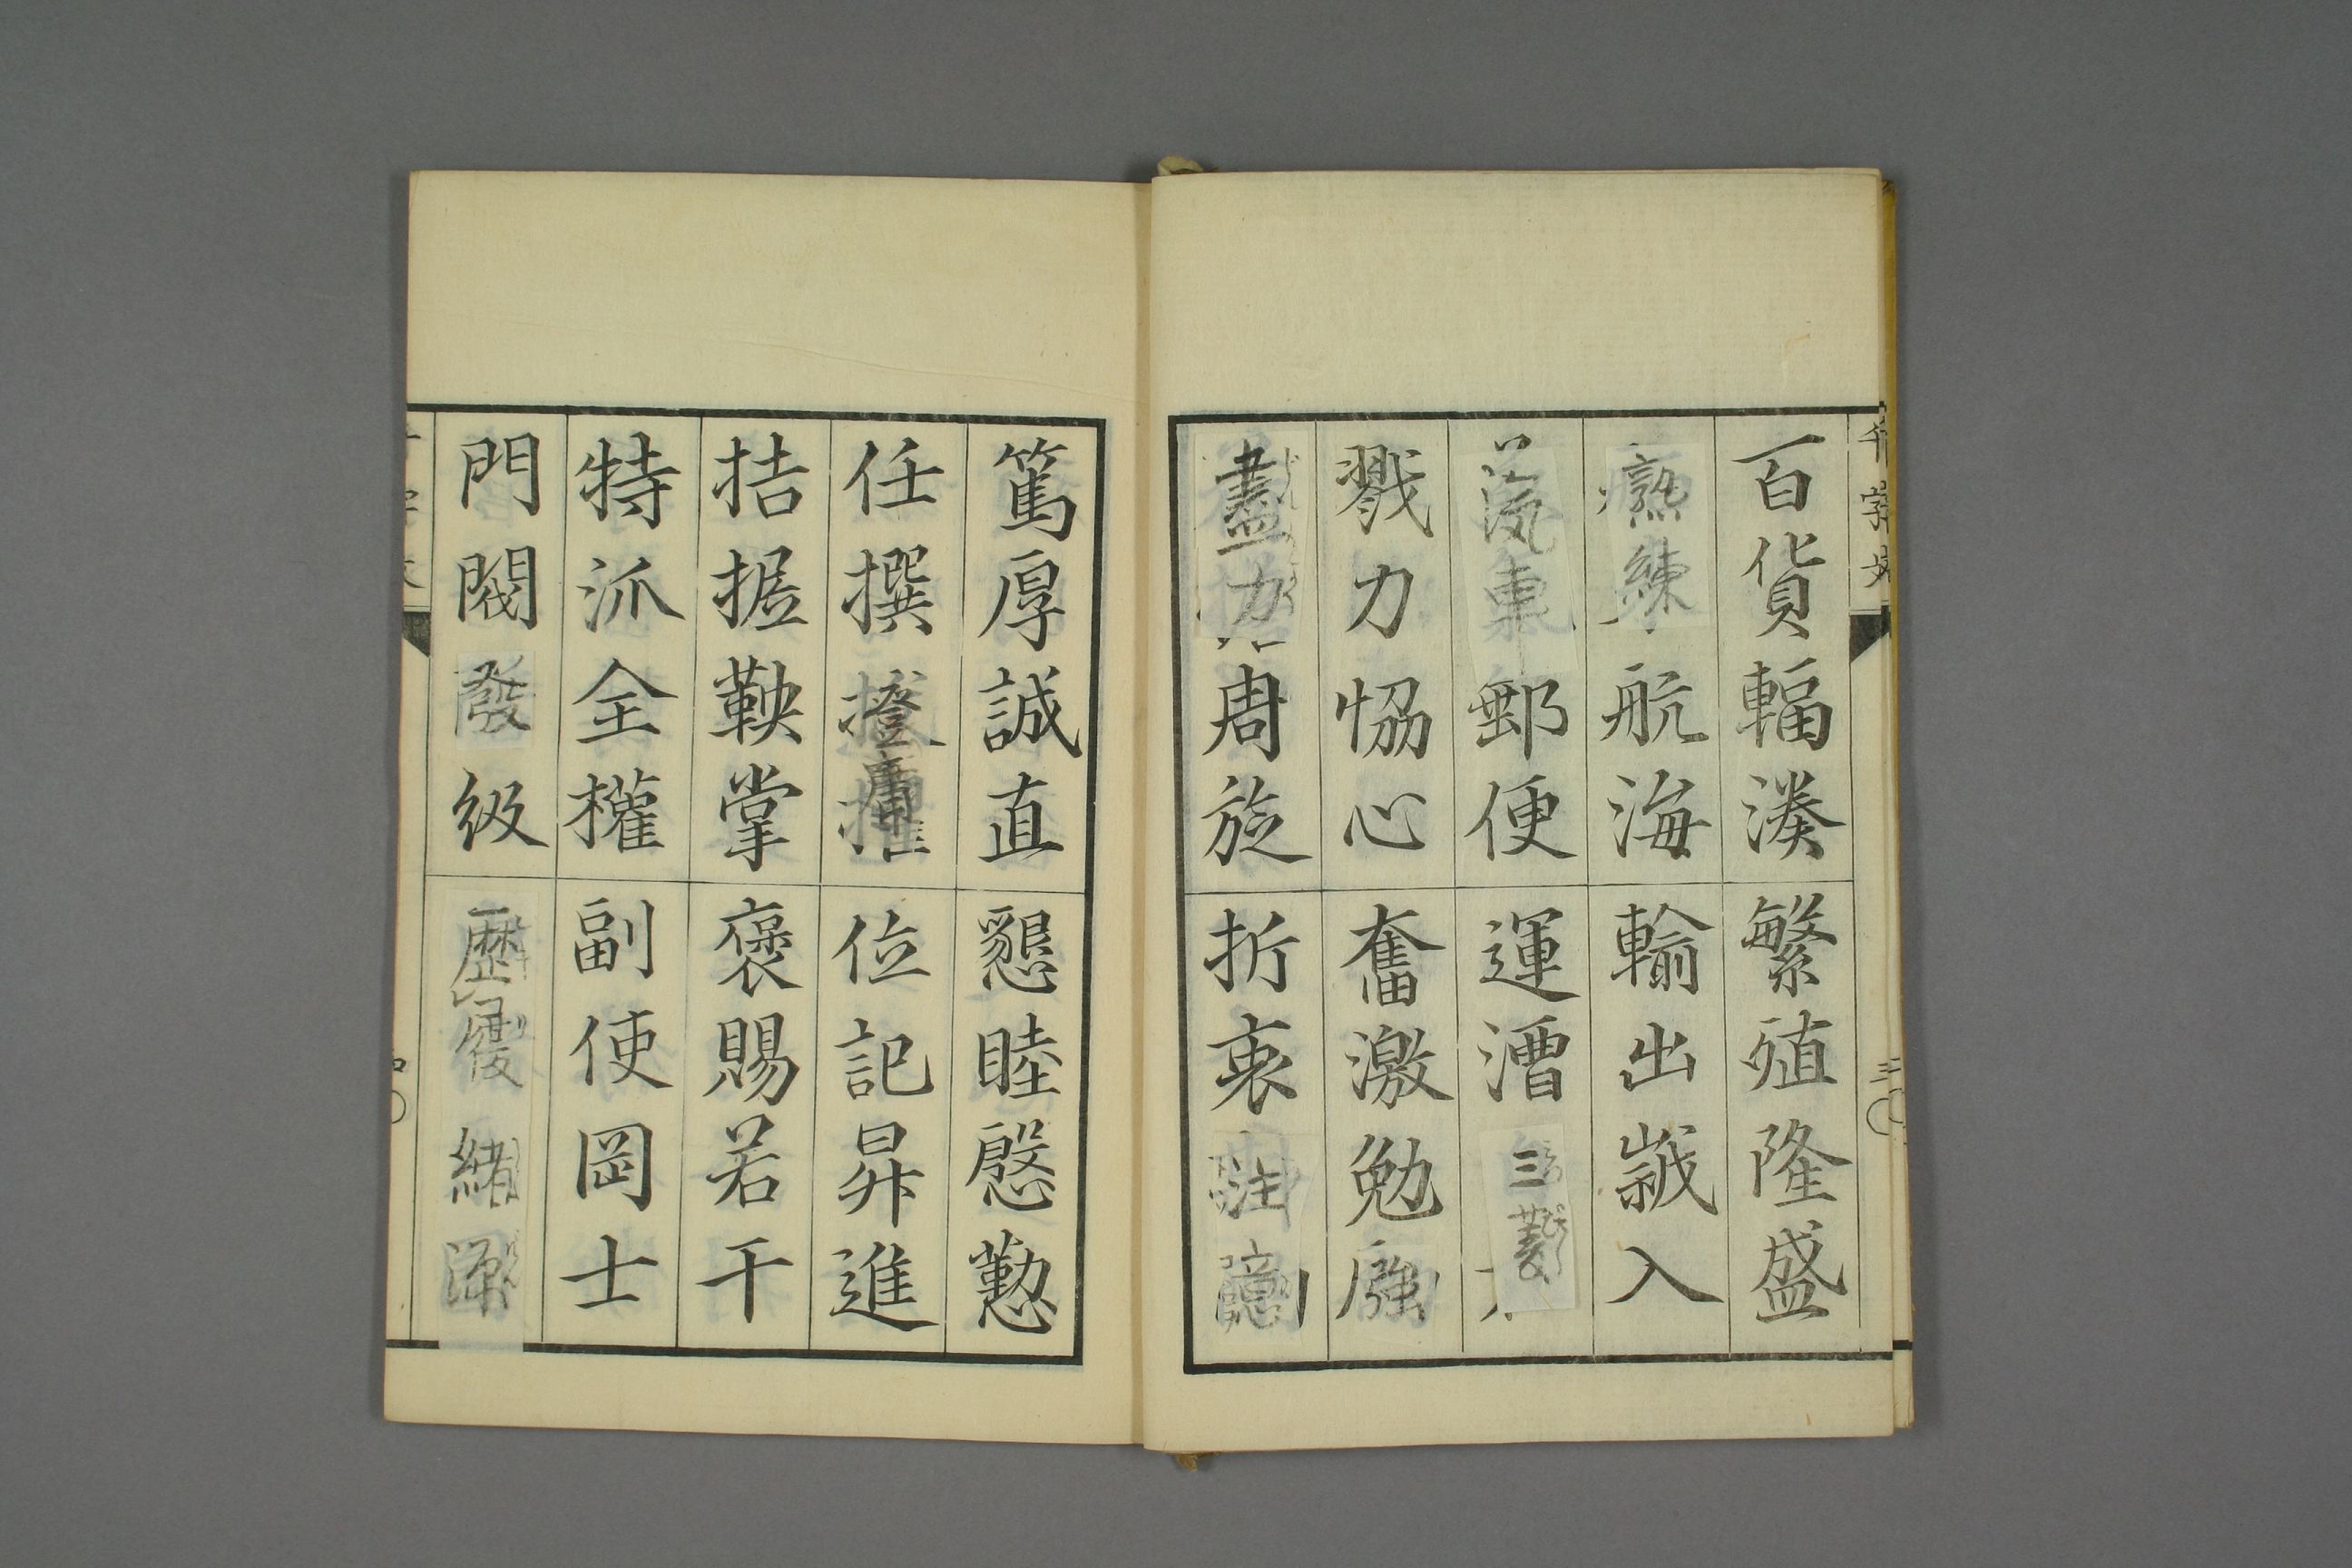 千字文
百貨輻湊繁殖隆盛
練航海輸出誠入
郵便運漕三菱
戮力恊心奮激勉強
盡力周旋折衷注
篤厚誠直懇睦慇懃
任撰位記昇進
拮据鞅掌褒賜若干
特派全權副使岡士
門閥發級歴履緒